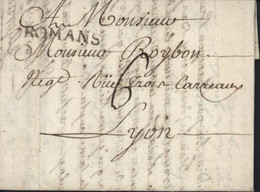 A Monsieur
ROMANS
Monsieur Roybon
Negt Rüe trois Carreaux
6
Lyon